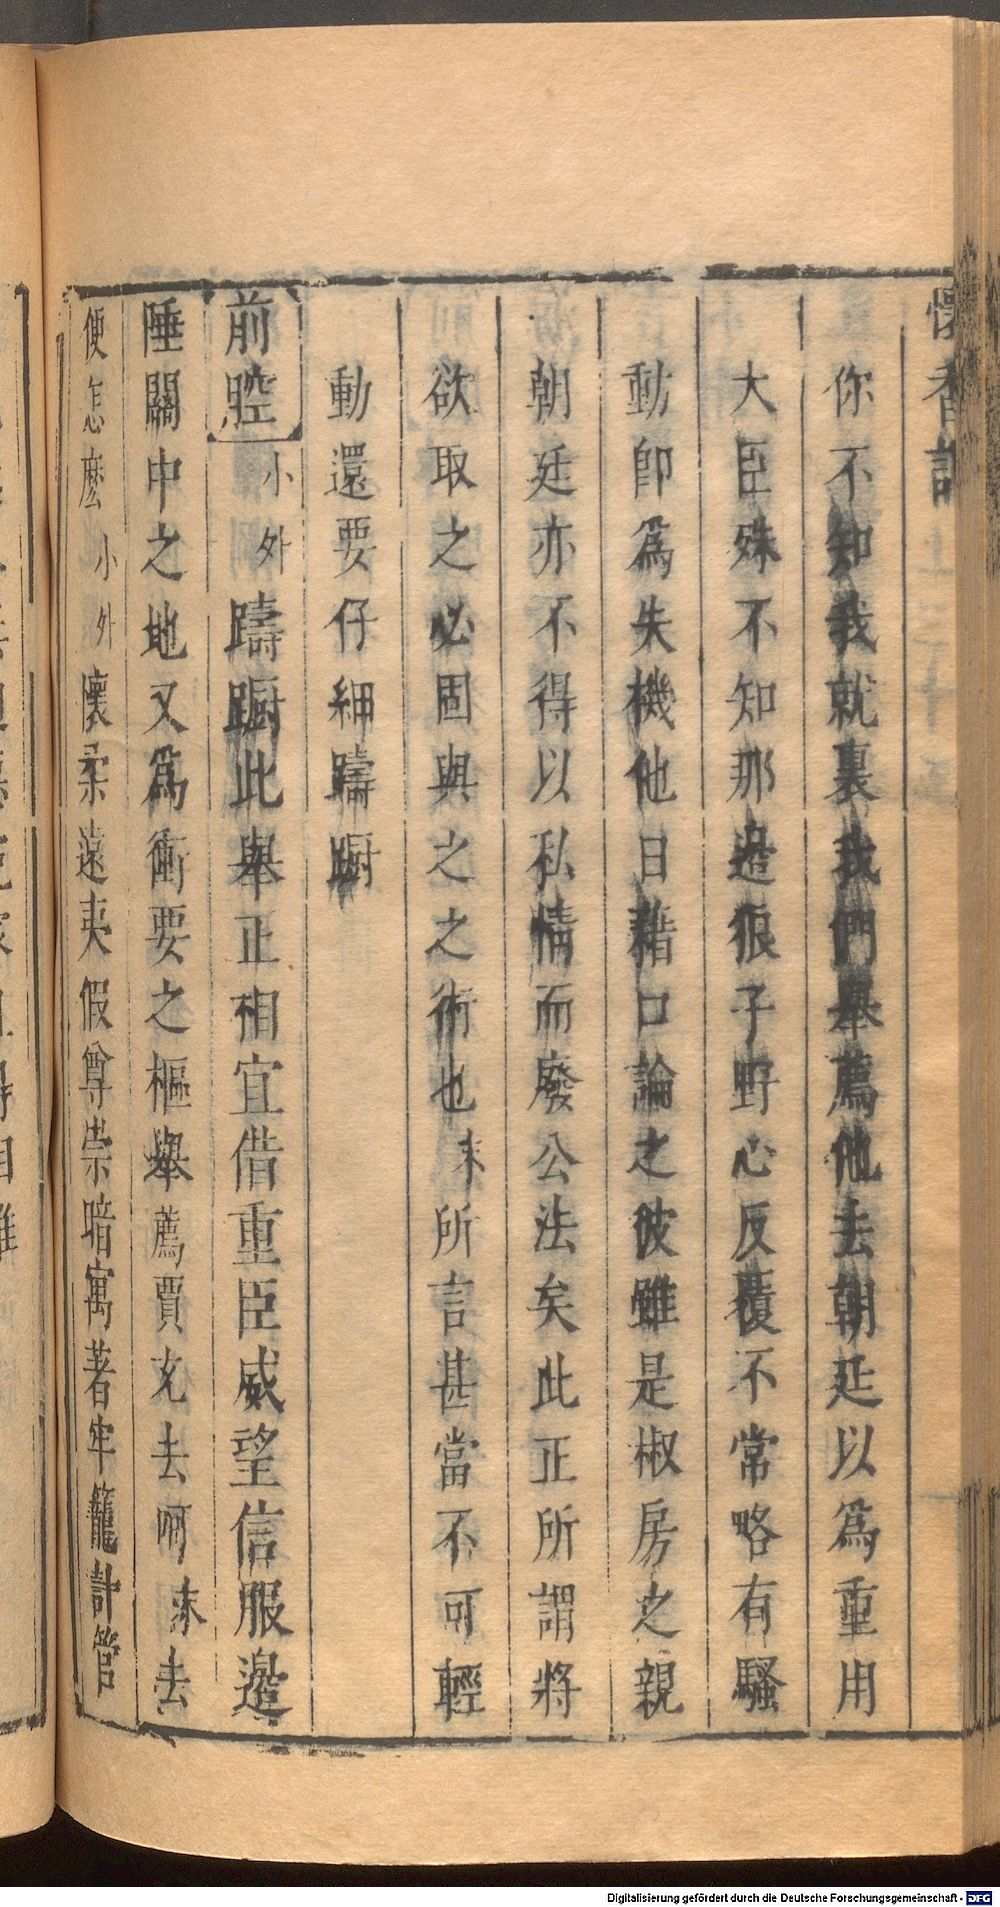 懷香記
你不知我就裏我們舉薦他去朝廷以為重用
大臣殊不知那邉狠子野心反覆不常略有騷
動卽爲失機他日藉口論之彼雖是椒房之親
朝廷亦不得以私情而廢公法矣此正所謂將
欲取之必固與之之術也末所言甚當不可輕
動還要仔細躊躕
前腔小外躊躕此舉正相宜借重臣威望信服邉
陲關中之地又爲衝要之樞舉薦賈充去呵末去
便怎麽小外懷柔遠夷假尊崇暗寓著牢籠計管
Digitalisierung gefördert durch die Deutsche Forschungsgemeinschaft - DFG